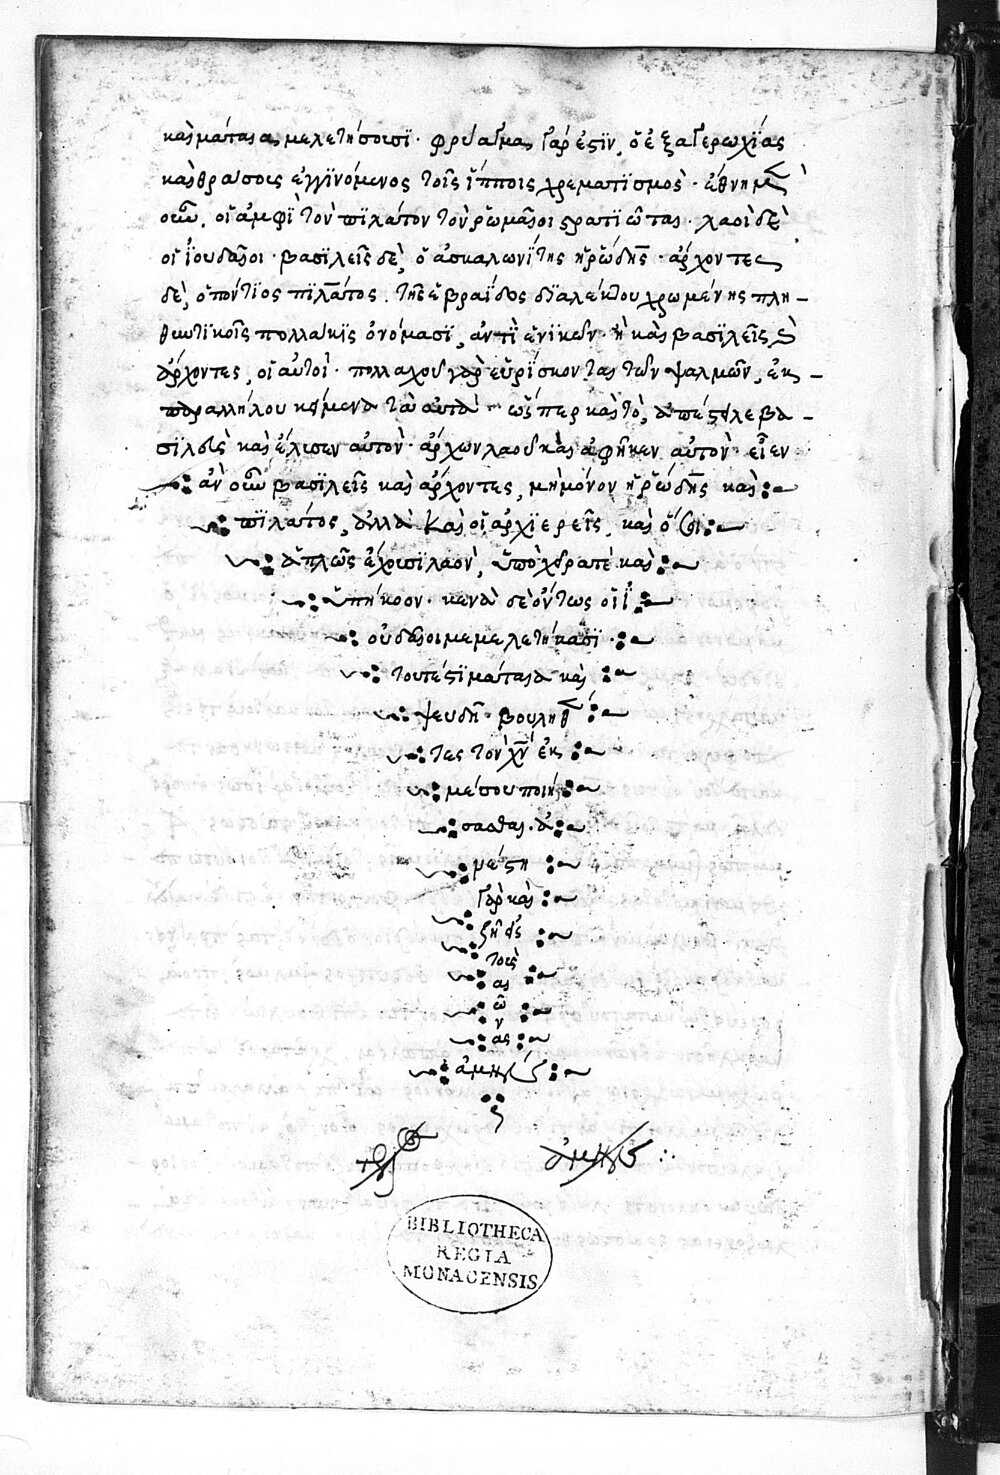 καὶ μάταια μελετήσουσι· φρύαγμα γάρ ἐστιν, ὁ ἐξ ἀγερωχίας
καὶ θράσους ἐγγινόμενος τοῖς ἵπποις χρεματισμὸς· ἔθνη μὲν
οὖν, οἱ ἀμφὶ τὸν πιλάτον τὸν ῥωμαῖοι στρατιῶται· λαοὶ δὲ
οἱ ἰουδαῖοι· βασιλεῖς δὲ, ὁ ἀσκαλωνίτης ἡρώδης· ἄρχοντες
δὲ, ὁ πόντιος πιλᾶτος. τῆς ἑβραΐδος διαλέκτου χρωμένης πλη-
θυντικοῖς πολλάκις ὀνόμασι, ἀντὶ ἑνικῶν· ἢ καὶ βασιλεῖς καὶ
ἄρχοντες, οἱ αὐτοί· πολλαχοῦ γὰρ εὑρίσκονται τῶν ψαλμῶν, ἐκ
παραλλήλου κείμενα τὰ αὐτὰ ὥσπερ καὶ τὸ, ἀπέστειλε βα-
σιλεὺς καὶ ἔλυσεν αὐτὸν· ἄρχων λαοῦ καὶ ἀφῆκεν αὐτὸν· εἶεν
ἂν οὖν βασιλεῖς καὶ ἄρχοντες, μὴ μόνον ἡρώδης καὶ
πιλάτος, ἀλλὰ καὶ οἱ ἀρχιερεῖς, καὶ ὅσοι
ἁπλῶς ἔχουσι λαὸν, ὑποχείριόν τε καὶ
ὑπήκοον· κενὰ δὲ ὄντως οἱ ἰ
ουδαῖοι μεμελετήκασι·
τουτέστι μάταια καὶ
ψευδῆ· βουληθέν
τες τὸν χν ἐκ
μέσου ποιή
σασθαι· ἀ
νέστη
γὰρ καὶ
ζῆ εἰς
τοὺς
αἰ
ῶ
ν
ας
ἀμήν
ἀμήν
BIBLIOTHECA
REGIA
MONACENSIS